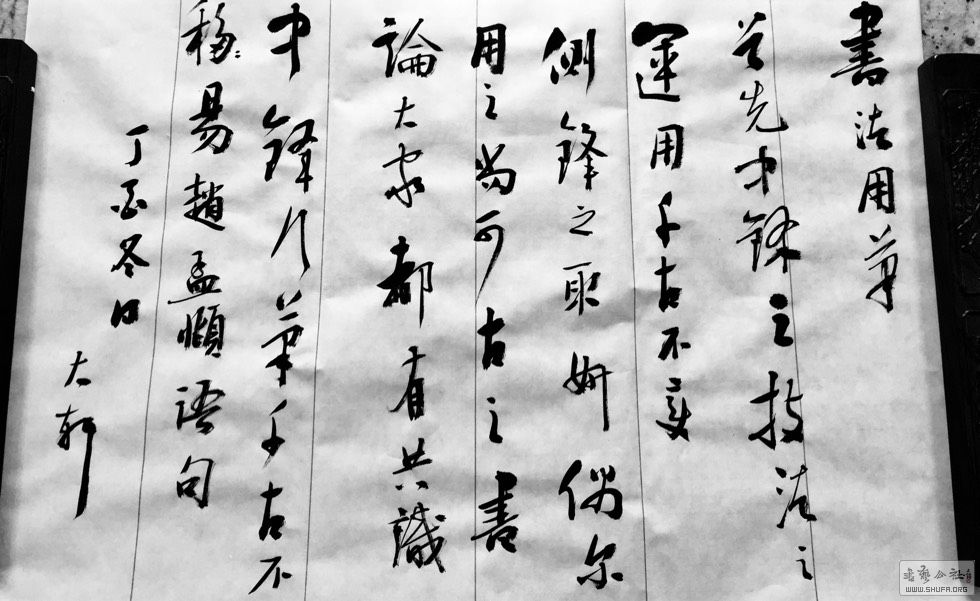 書法用筆
首先中鋒之技法之
運用千古不變
側鋒之取妍偶尔
用之尚可古之書
論大家都有共識
中鋒行筆千古不
移易趙孟頫語句
丁酉冬日
大軒
書藝公社
WWW.SHUFA.ORG